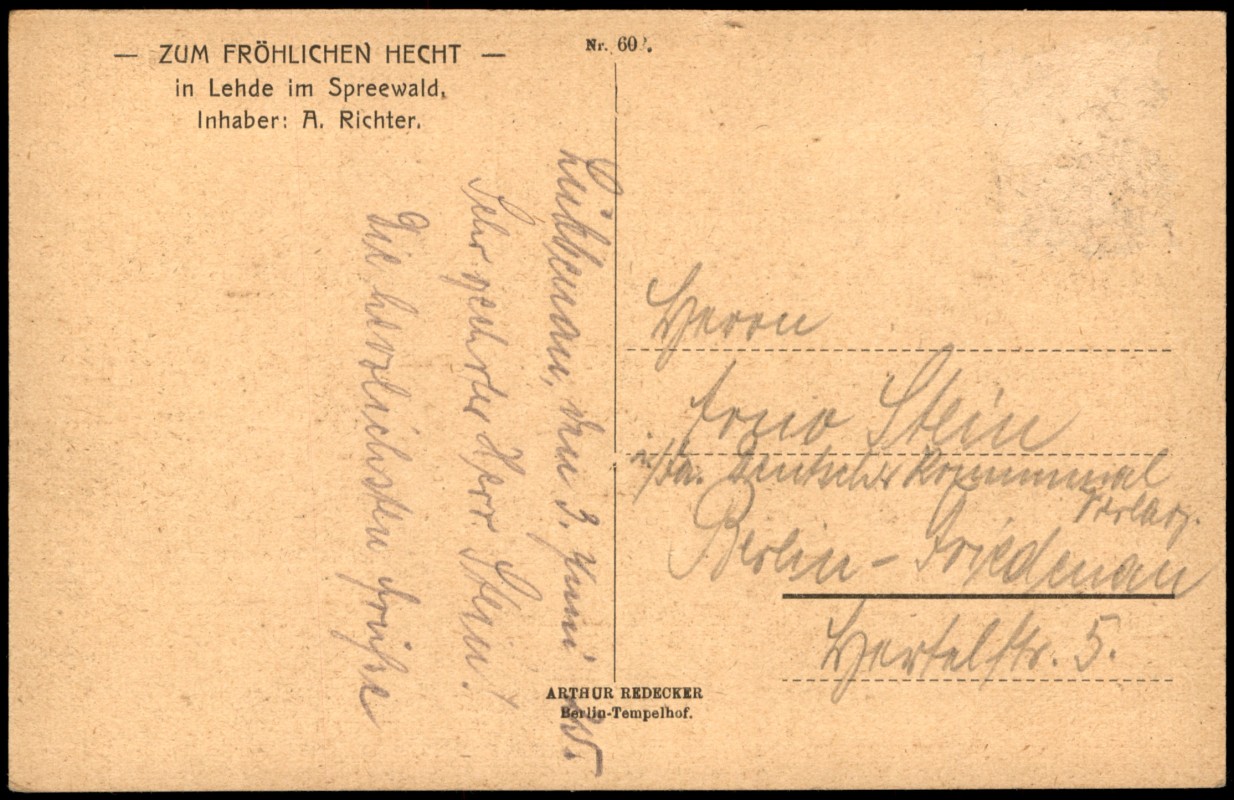 — ZUM FRÖHLICHEN HECHT —
in Lehde im Spreewald.
Inhaber: A. Richter.
Nr. 60
Lübbenau, den 3. Juni 25.
Sehr geehrter Herr Stein!
Die herzlichsten Grüße
Herrn
Arno Stein
i/Fa. Deutscher Kommunal
Verlag.
Berlin-Friedenau
Hertelstr. 5.
ARTHUR REDECKER
Berlin-Tempelhof.